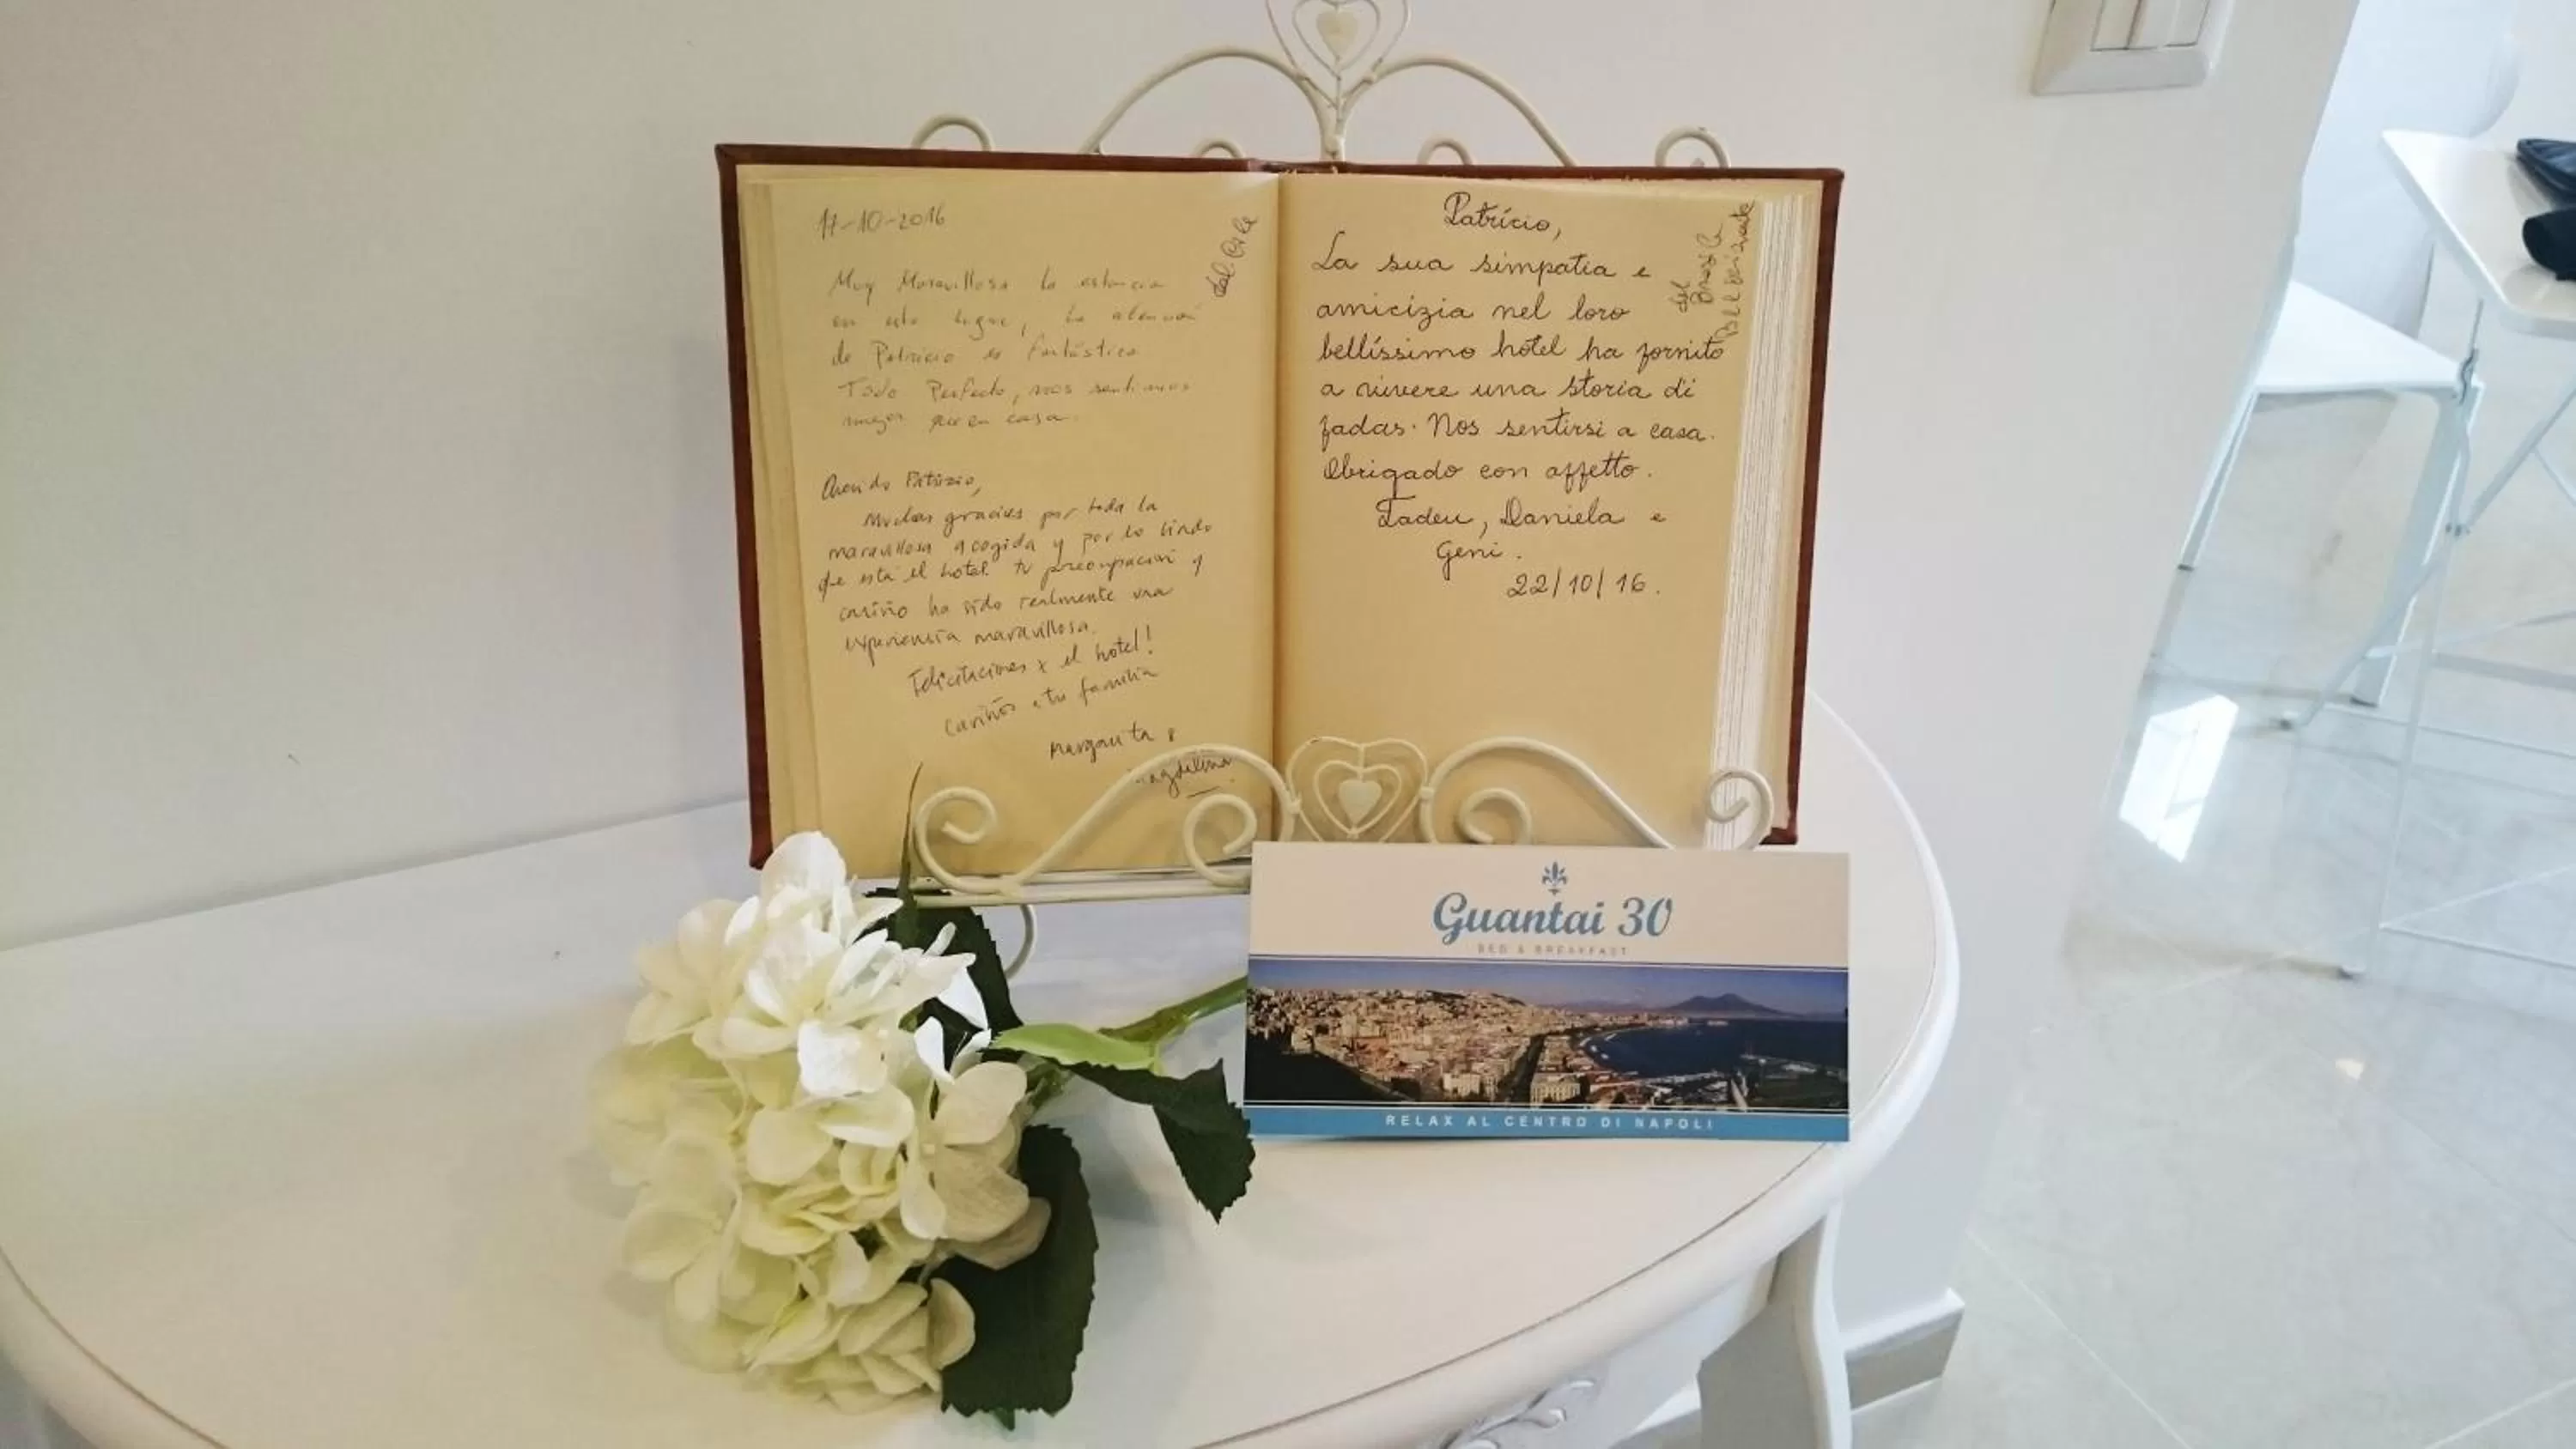 17-10-2016
dal Cile
Muy Maravillosa la estancia
en este lugar, la atención
de Patricio es fantástica
Todo Perfecto, nos sentimos
mejor que en casa.
Querido Patrizio,
Muchas gracias por toda la
maravillosa acogida y por lo lindo
que está el hotel. tu preocupación y
cariño ha sido realmente una
experiencia maravillosa.
Felicitaciones x el hotel!
Cariños a tu familia
Margarita y
Magdalena
Patrício,
La sua simpatia e
amicizia nel loro
bellíssimo hotel ha fornito
a vivere una storia di
fadas. Nos sentirsi a casa.
Obrigado con affetto.
Tadeu, Daniela e
Geni.
22/10/16.
dal
Brasile
Guantai 30
BED & BREAKFAST
RELAX AL CENTRO DI NAPOLI